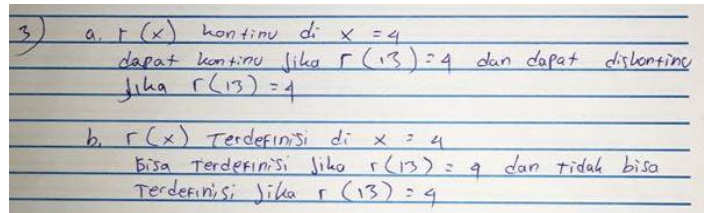 3) a. r(x) kontinu di x = 4
dapat kontinu jika r(13) = 4 dan dapat diskontinu
jika r(13) = 4
b. r(x) Terdefinisi di x = 4
Bisa Terdefinisi jika r(13) = 4 dan tidak bisa
Terdefinisi jika r(13) = 4